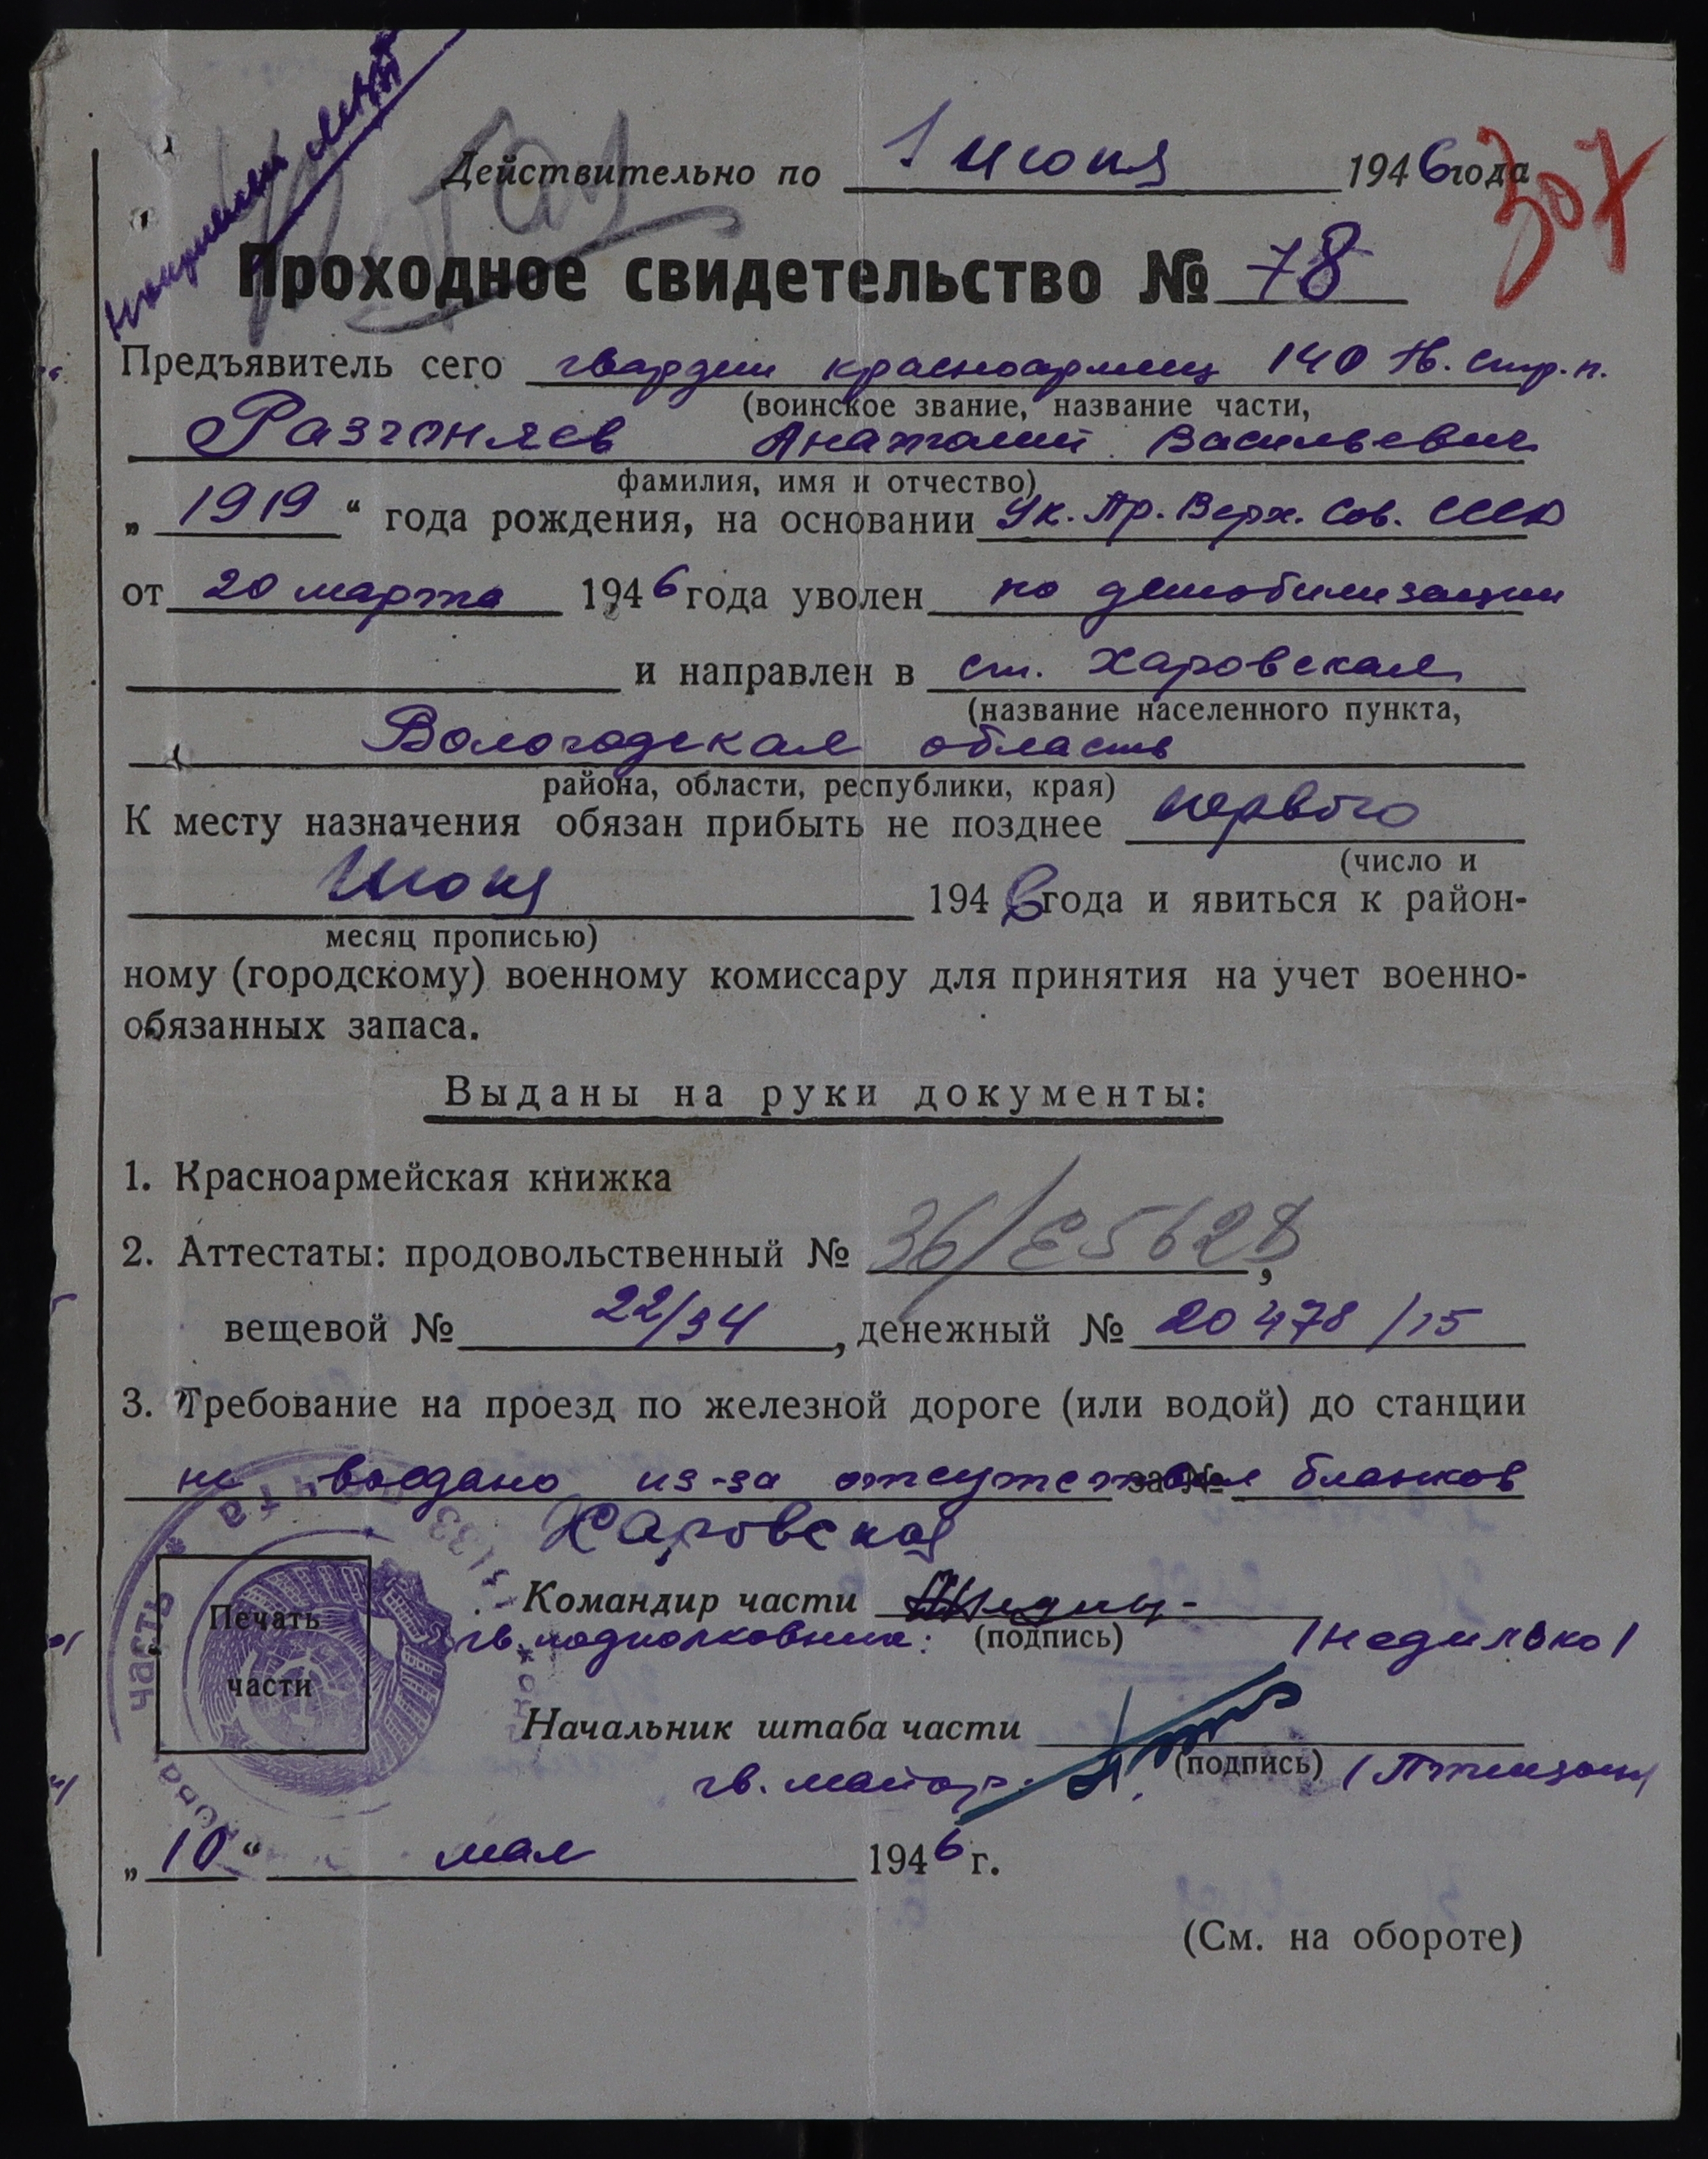 Действительно по 1 июня 1946 года
307
Проходное свидетельство № 78
Предъявитель сего гвардии красноармеец 140 гв. стр. п.
(воинское звание, название части,
Разгоняев Анатолий Васильевич
фамилия, имя и отчество)
„ 1919 “ года рождения, на основании Ук. Пр. Верх. Сов. СССР
от 20 марта 1946 года уволен по демобилизации
и направлен в ст. Харовская
(название населенного пункта,
Вологодская область
района, области, республики, края)
К месту назначения обязан прибыть не позднее первого
(число и
Июня 1946 года и явиться к район-
месяц прописью)
ному (городскому) военному комиссару для принятия на учет военно-
обязанных запаса.
Выданы на руки документы:
1. Красноармейская книжка
2. Аттестаты: продовольственный № 36/
вещевой № 22/34, денежный № 20478/15
3. Требование на проезд по железной дороге (или водой) до станции
не выдано из-за отсутствия за № бланков
Харовская
Командир части
гв. подполковник: (подпись) /Недилько/
Печать
части
Начальник штаба части
гв. майор: (подпись)
часть
„ 10 “ мая 1946 г.
(См. на обороте)